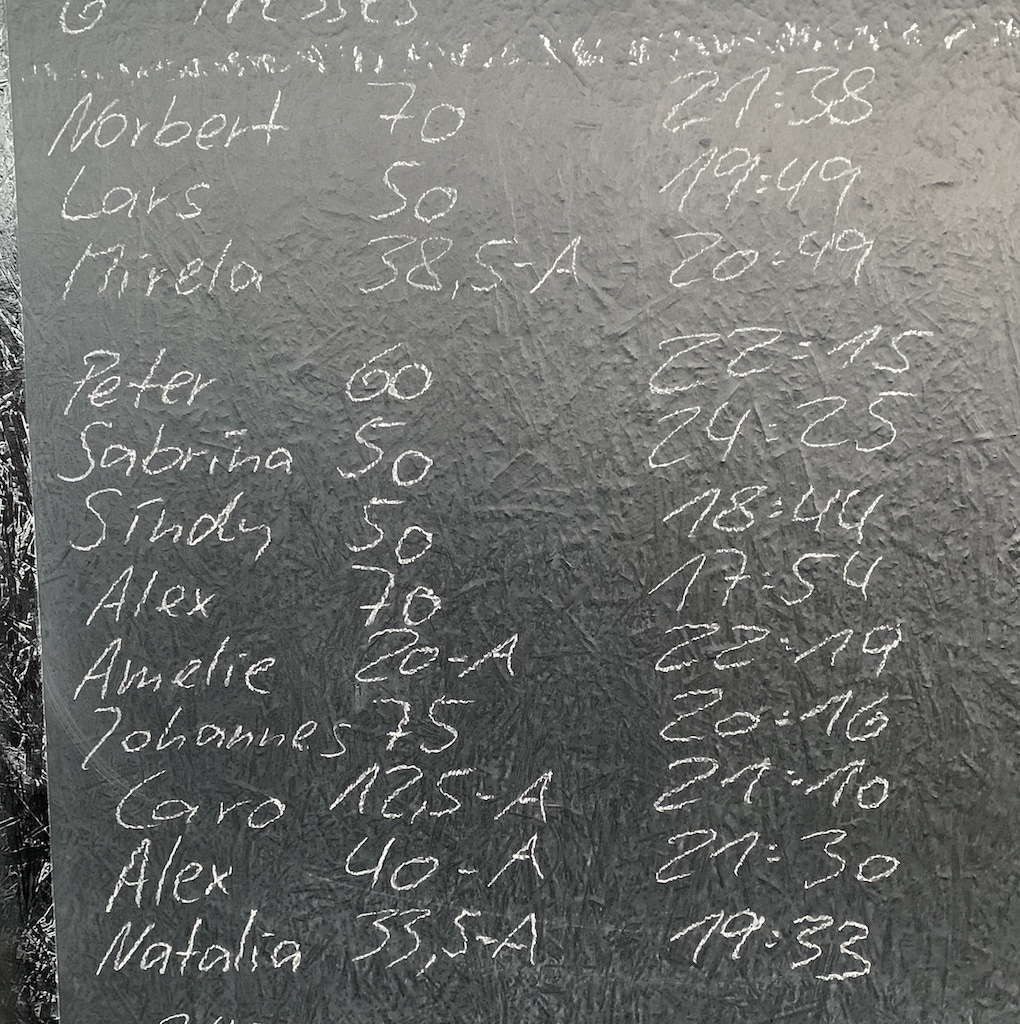 6 Presses
Norbert 70 21:38
Lars 50 19:49
Mirela 38,5-A 20:49
Peter 60 22:15
Sabrina 50 24:25
Sindy 50 18:44
Alex 70 17:54
Amelie 20-A 22:19
Johannes 75 20:16
Caro 12,5-A 21:10
Alex 40-A 21:30
Natalia 33,5-A 19:33